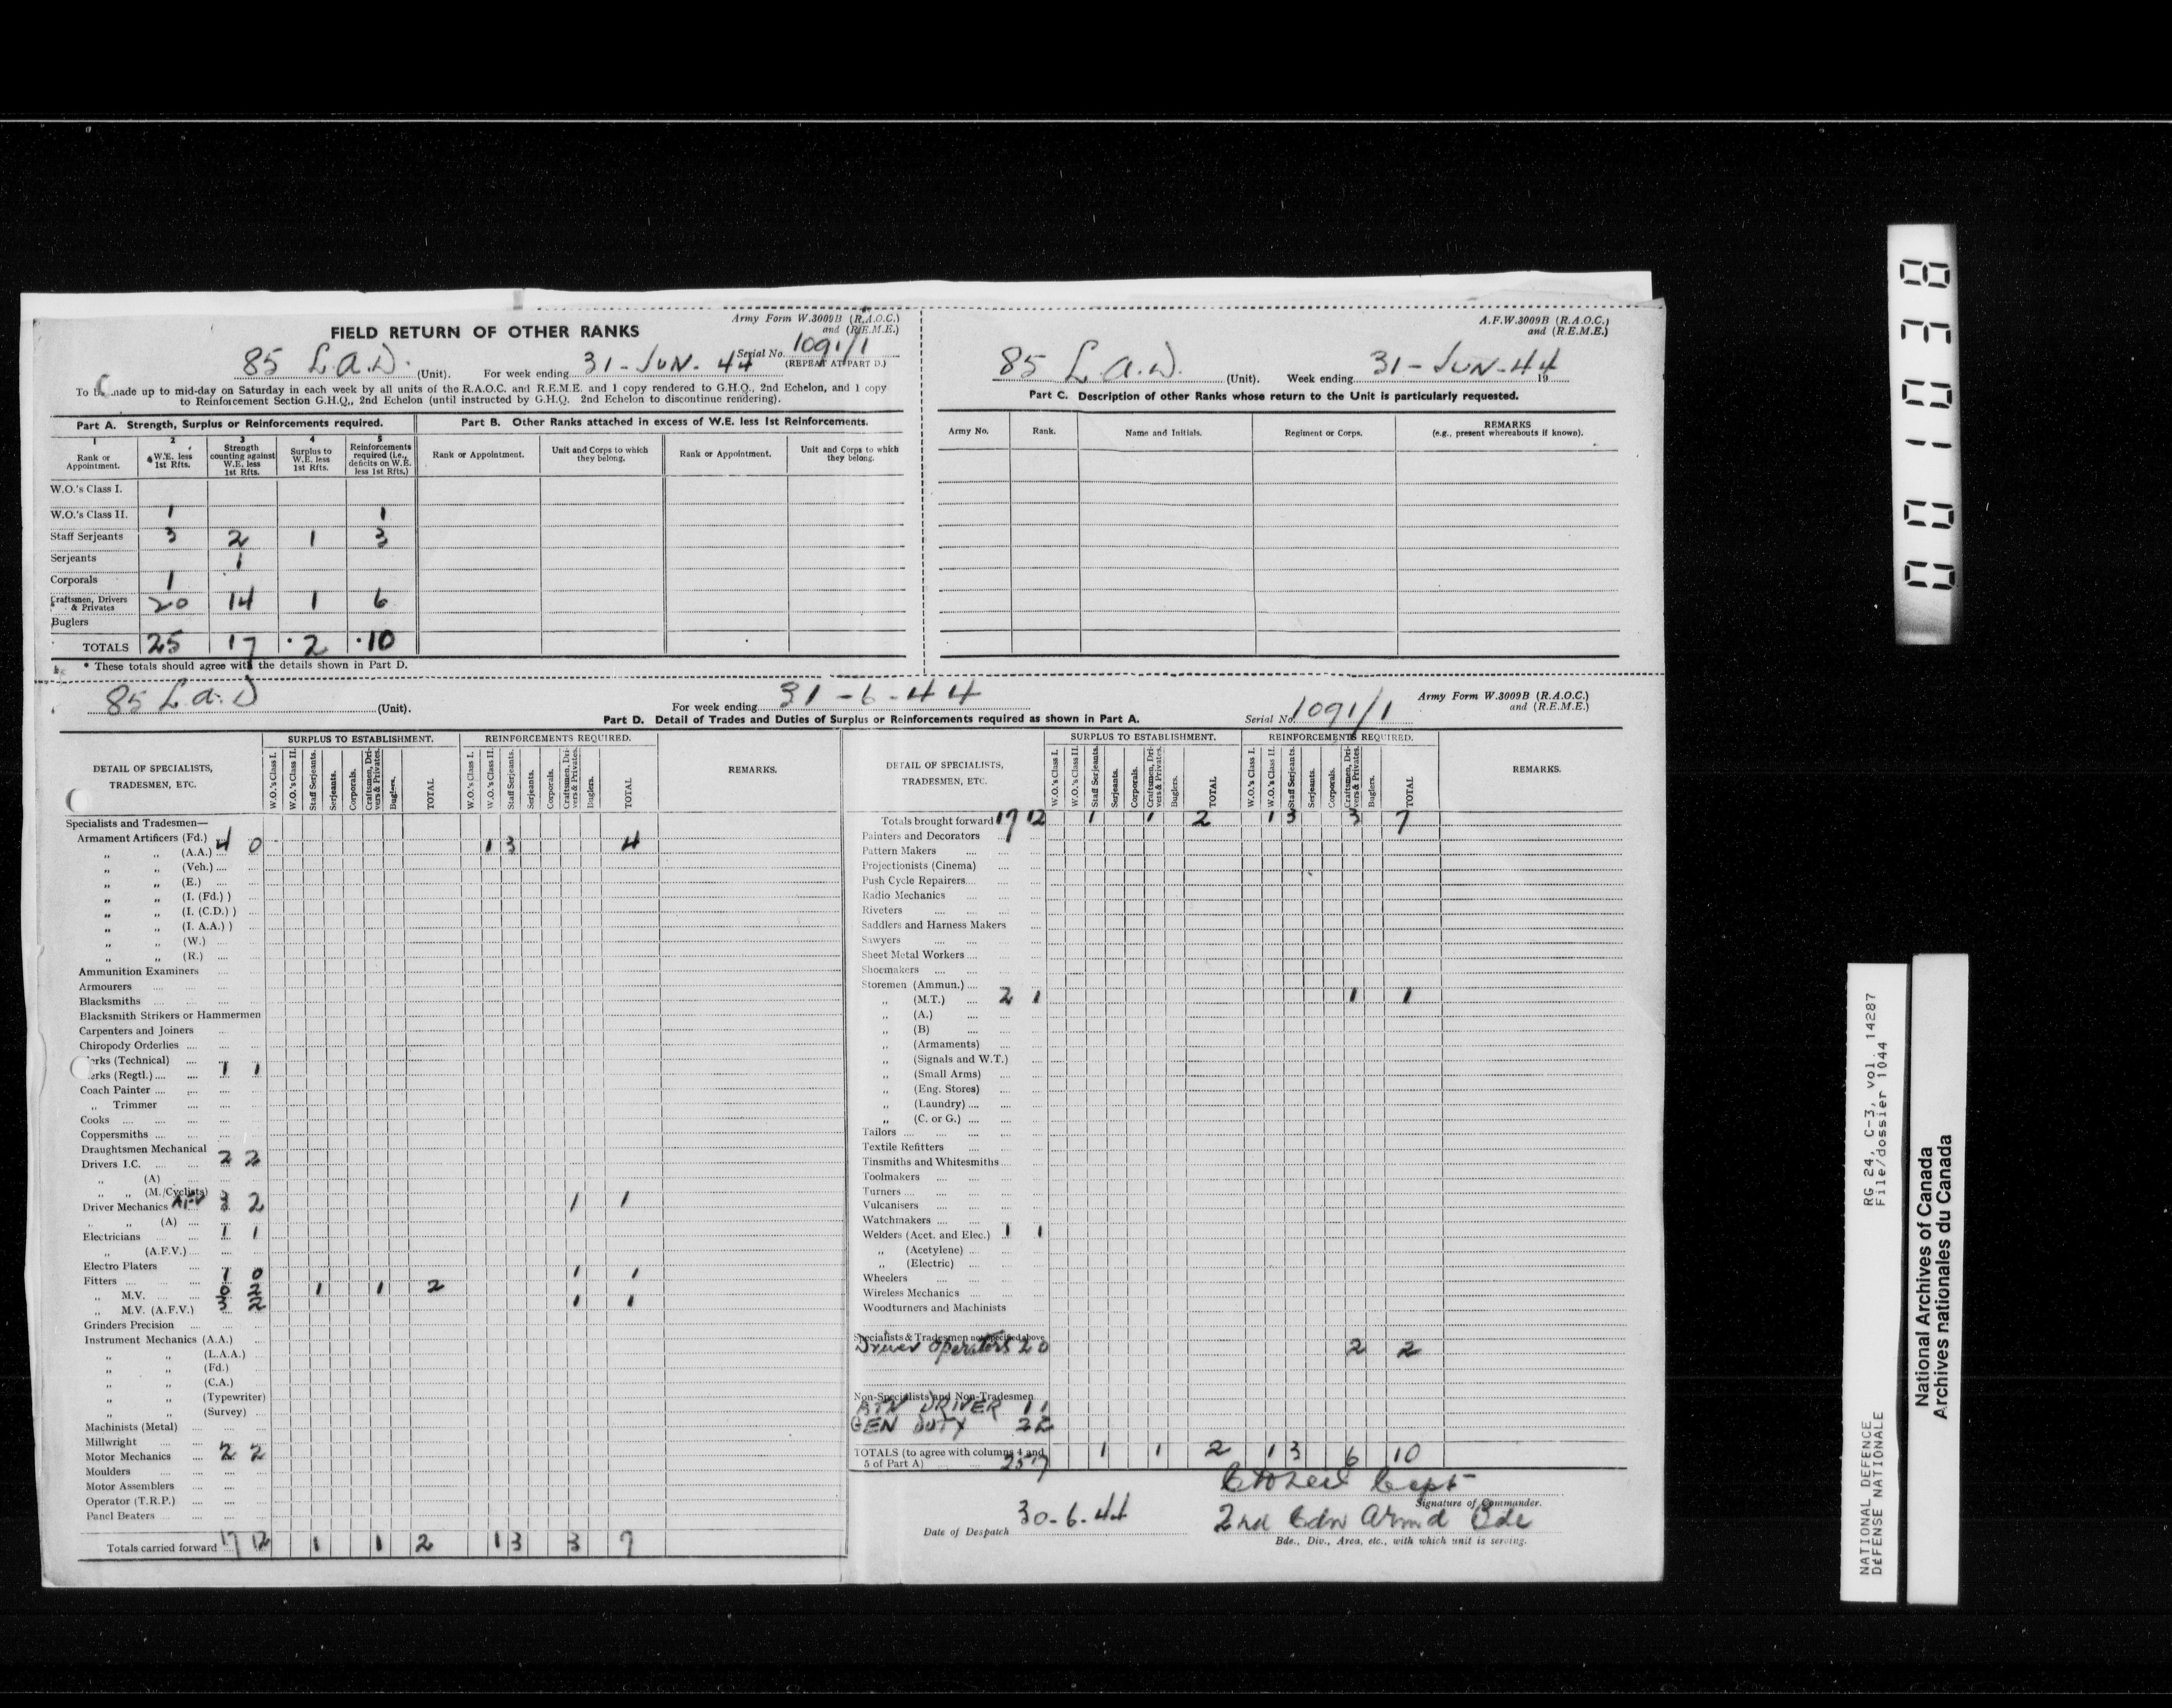 Army Form W.3009B (R.A.O.C.)
and (R.E.M.E.)
FIELD RETURN OF OTHER RANKS
Serial No. 1091/1
(REPEAT AT PART D.)
85 L.A.D. (Unit). For week ending 31-JUN-44
To be made up to mid-day on Saturday in each week by all units of the R.A.O.C. and R.E.M.E. and 1 copy rendered to G.H.Q., 2nd Echelon, and 1 copy
to Reinforcement Section G.H.Q., 2nd Echelon (until instructed by G.H.Q. 2nd Echelon to discontinue rendering).
Part A. Strength, Surplus or Reinforcements required.
1 2 3 4 5
Rank or Appointment. W.E. less 1st Rfts. Strength counting against W.E. less 1st Rfts. Surplus to W.E. less 1st Rfts. Reinforcements required (i.e., deficits on W.E. less 1st Rfts.)
W.O.'s Class I.
W.O.'s Class II. 1 1
Staff Serjeants 3 2 1 3
Serjeants 1
Corporals 1
Craftsmen, Drivers & Privates 20 14 1 6
Buglers
TOTALS 25 17 2 10
* These totals should agree with the details shown in Part D.
Part B. Other Ranks attached in excess of W.E. less 1st Reinforcements.
Rank or Appointment. Unit and Corps to which they belong. Rank or Appointment. Unit and Corps to which they belong.
A.F.W.3009B (R.A.O.C.)
and (R.E.M.E.)
85 L.A.D. (Unit). Week ending 31-JUN-44 19
Part C. Description of other Ranks whose return to the Unit is particularly requested.
Army No. Rank. Name and Initials. Regiment or Corps. REMARKS (e.g., present whereabouts if known).
85 L.A.D (Unit). For week ending 31-6-44
Army Form W.3009B (R.A.O.C.)
and (R.E.M.E.)
Part D. Detail of Trades and Duties of Surplus or Reinforcements required as shown in Part A. Serial No. 1091/1
DETAIL OF SPECIALISTS, TRADESMEN, ETC.
SURPLUS TO ESTABLISHMENT. REINFORCEMENTS REQUIRED. REMARKS.
W.O.'s Class I. W.O.'s Class II. Staff Serjeants. Serjeants. Corporals. Craftsmen, Drivers & Privates. Buglers. TOTAL
W.O.'s Class I. W.O.'s Class II. Staff Serjeants. Serjeants. Corporals. Craftsmen, Drivers & Privates. Buglers. TOTAL
Specialists and Tradesmen—
Armament Artificers (Fd.) 4 0 1 3 4
„ „ (A.A.)
„ „ (Veh.)
„ „ (E.)
„ „ (I. (Fd.) )
„ „ (I. (C.D.) )
„ „ (I. A.A.) )
„ „ (W.)
„ „ (R.)
Ammunition Examiners
Armourers
Blacksmiths
Blacksmith Strikers or Hammermen
Carpenters and Joiners
Chiropody Orderlies
Clerks (Technical)
Clerks (Regtl.) 1 1
Coach Painter
„ Trimmer
Cooks
Coppersmiths
Draughtsmen Mechanical
Drivers I.C. 2 2
„ (A)
„ „ (M./Cyclists)
Driver Mechanics AFV 3 2 1 1
„ „ (A)
Electricians 1 1
„ (A.F.V.)
Electro Platers
Fitters 1 0 1 1
„ M.V. 0 2 1 1 2
„ M.V. (A.F.V.) 3 2 1 1
Grinders Precision
Instrument Mechanics (A.A.)
„ „ (L.A.A.)
„ „ (Fd.)
„ „ (C.A.)
„ „ (Typewriter)
„ „ (Survey)
Machinists (Metal)
Millwright
Motor Mechanics 2 2
Moulders
Motor Assemblers
Operator (T.R.P.)
Panel Beaters
Totals carried forward 17 12 1 1 2 1 3 3 7
DETAIL OF SPECIALISTS, TRADESMEN, ETC.
SURPLUS TO ESTABLISHMENT. REINFORCEMENTS REQUIRED. REMARKS.
W.O.'s Class I. W.O.'s Class II. Staff Serjeants. Serjeants. Corporals. Craftsmen, Drivers & Privates. Buglers. TOTAL
W.O.'s Class I. W.O.'s Class II. Staff Serjeants. Serjeants. Corporals. Craftsmen, Drivers & Privates. Buglers. TOTAL
Totals brought forward 17 12 1 1 2 1 3 3 7
Painters and Decorators
Pattern Makers
Projectionists (Cinema)
Push Cycle Repairers
Radio Mechanics
Riveters
Saddlers and Harness Makers
Sawyers
Sheet Metal Workers
Shoemakers
Storemen (Ammun.)
„ (M.T.) 2 1 1 1
„ (A.)
„ (B)
„ (Armaments)
„ (Signals and W.T.)
„ (Small Arms)
„ (Eng. Stores)
„ (Laundry)
„ (C. or G.)
Tailors
Textile Refitters
Tinsmiths and Whitesmiths
Toolmakers
Turners
Vulcanisers
Watchmakers
Welders (Acet. and Elec.) 1 1
„ (Acetylene)
„ (Electric)
Wheelers
Wireless Mechanics
Woodturners and Machinists
Specialists & Tradesmen not specified above
Driver Operators 2 0 2 2
Non-Specialists and Non-Tradesmen
BTN DRIVER 1 1
GEN DUTY 2 2
TOTALS (to agree with columns 4 and 5 of Part A) 25 17 1 1 2 1 3 6 10
Capt
Signature of Commander.
Date of Despatch 30-6-44
2nd Cdn Armd Bde
Bde., Div., Area, etc., with which unit is serving.
001038
RG 24, C-3, vol. 14287
File/dossier 1044
NATIONAL DEFENCE
DEFENSE NATIONALE
National Archives of Canada
Archives nationales du Canada